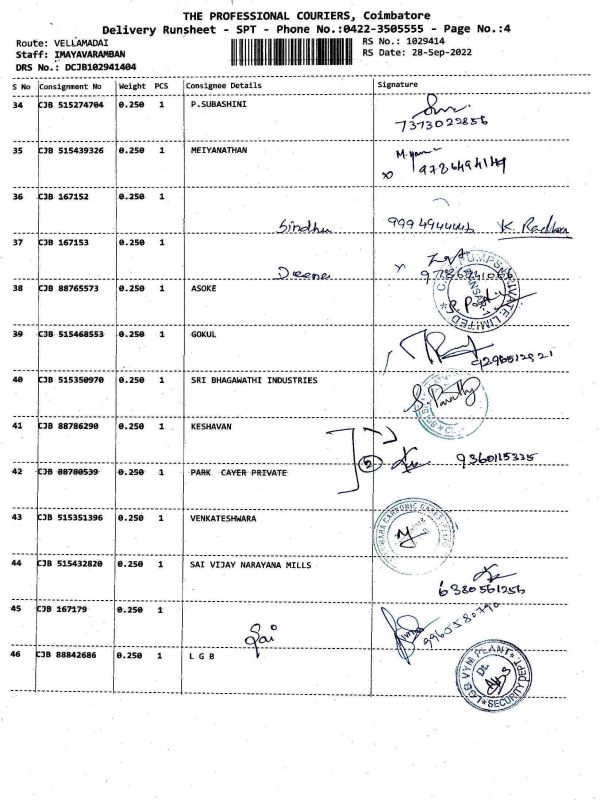 THE PROFESSIONAL COURIERS, Coimbatore
Delivery Runsheet - SPT - Phone No.:0422-3505555 - Page No.:4
Route: VELLAMADAI RS No.: 1029414
Staff: IMAYAVARAMBAN RS Date: 28-Sep-2022
DRS No.: DCJB102941404
S No Consignment No Weight PCS Consignee Details Signature
34 CJB 515274704 0.250 1 P.SUBASHINI
7373022856
35 CJB 515439326 0.250 1 MEIYANATHAN
36 CJB 167152 0.250 1
Sindhu K. Radha
37 CJB 167153 0.250 1
Deena
38 CJB 88765573 0.250 1 ASOKE
PRIVATE LIMITED
39 CJB 515468553 0.250 1 GOKUL
40 CJB 515350970 0.250 1 SRI BHAGAWATHI INDUSTRIES
41 CJB 88786290 0.250 1 KESHAVAN
2 9360115335
42 CJB 88780539 0.250 1 PARK CAYER PRIVATE
43 CJB 515351396 0.250 1 VENKATESHWARA
44 CJB 515432820 0.250 1 SAI VIJAY NARAYANA MILLS
6380561256
45 CJB 167179 0.250 1
Sai 9965580790
46 CJB 88842686 0.250 1 L G B
LGB VYM PLANT
SECURITY DEPT